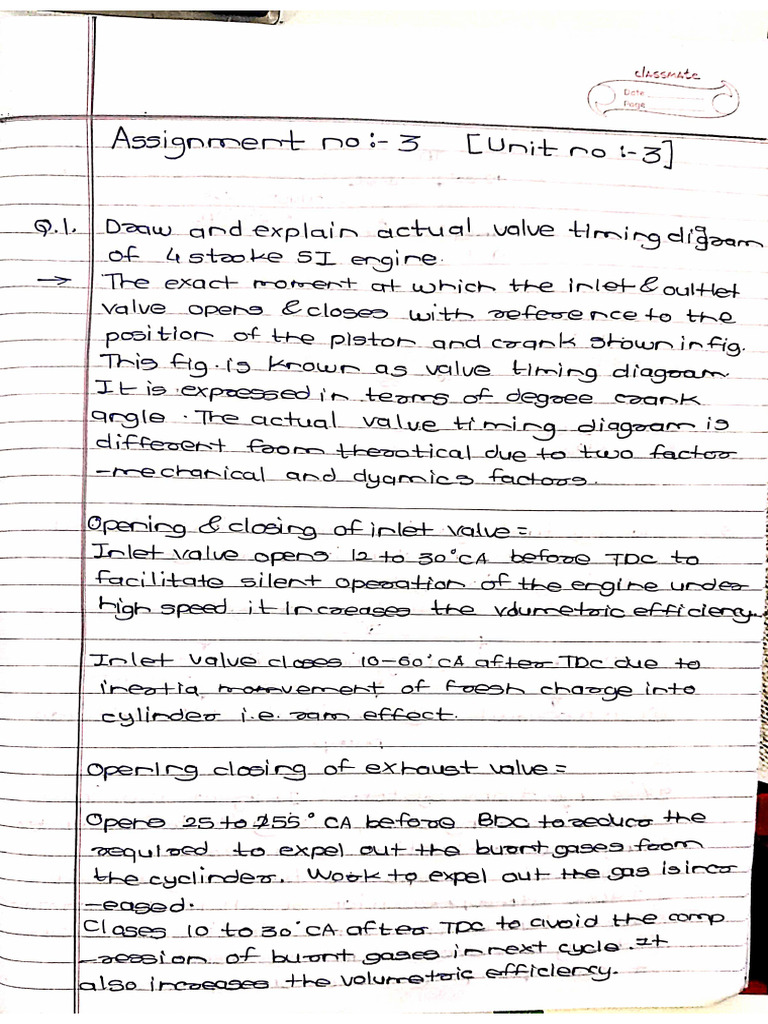 classmate
Date
Page
Assignment no:- 3 [Unit no :- 3]
Q.1. Draw and explain actual value timing digram
of 4 stroke SI engine.
→ The exact moment at which the inlet & oultlet
valve opens & closes with reference to the
position of the piston and crank shown in fig.
This fig. is known as value timing diagram.
It is expressed in terms of degree crank
angle. The actual value timing diagram is
different from therotical due to two factor
-mechanical and dyamics factors.
Opening & closing of inlet value =
Inlet value opens 12 to 30°CA before TDC to
facilitate silent operation of the engine under
high speed it increases the volumetric efficiency.
Inlet value closes 10-60°CA after TDC due to
inertia movement of fresh charge into
cylinder i.e. ram effect.
Opening closing of exhaust value =
Opens 25 to 255° CA before BDC to reduce the
required to expel out the burnt gases from
the cyclinder. Work to expel out the gas is incr
-eased.
Closes 10 to 30°CA after TDC to avoid the comp
-ression of burnt gases in next cycle. It
also increases the volumetric efficiency.